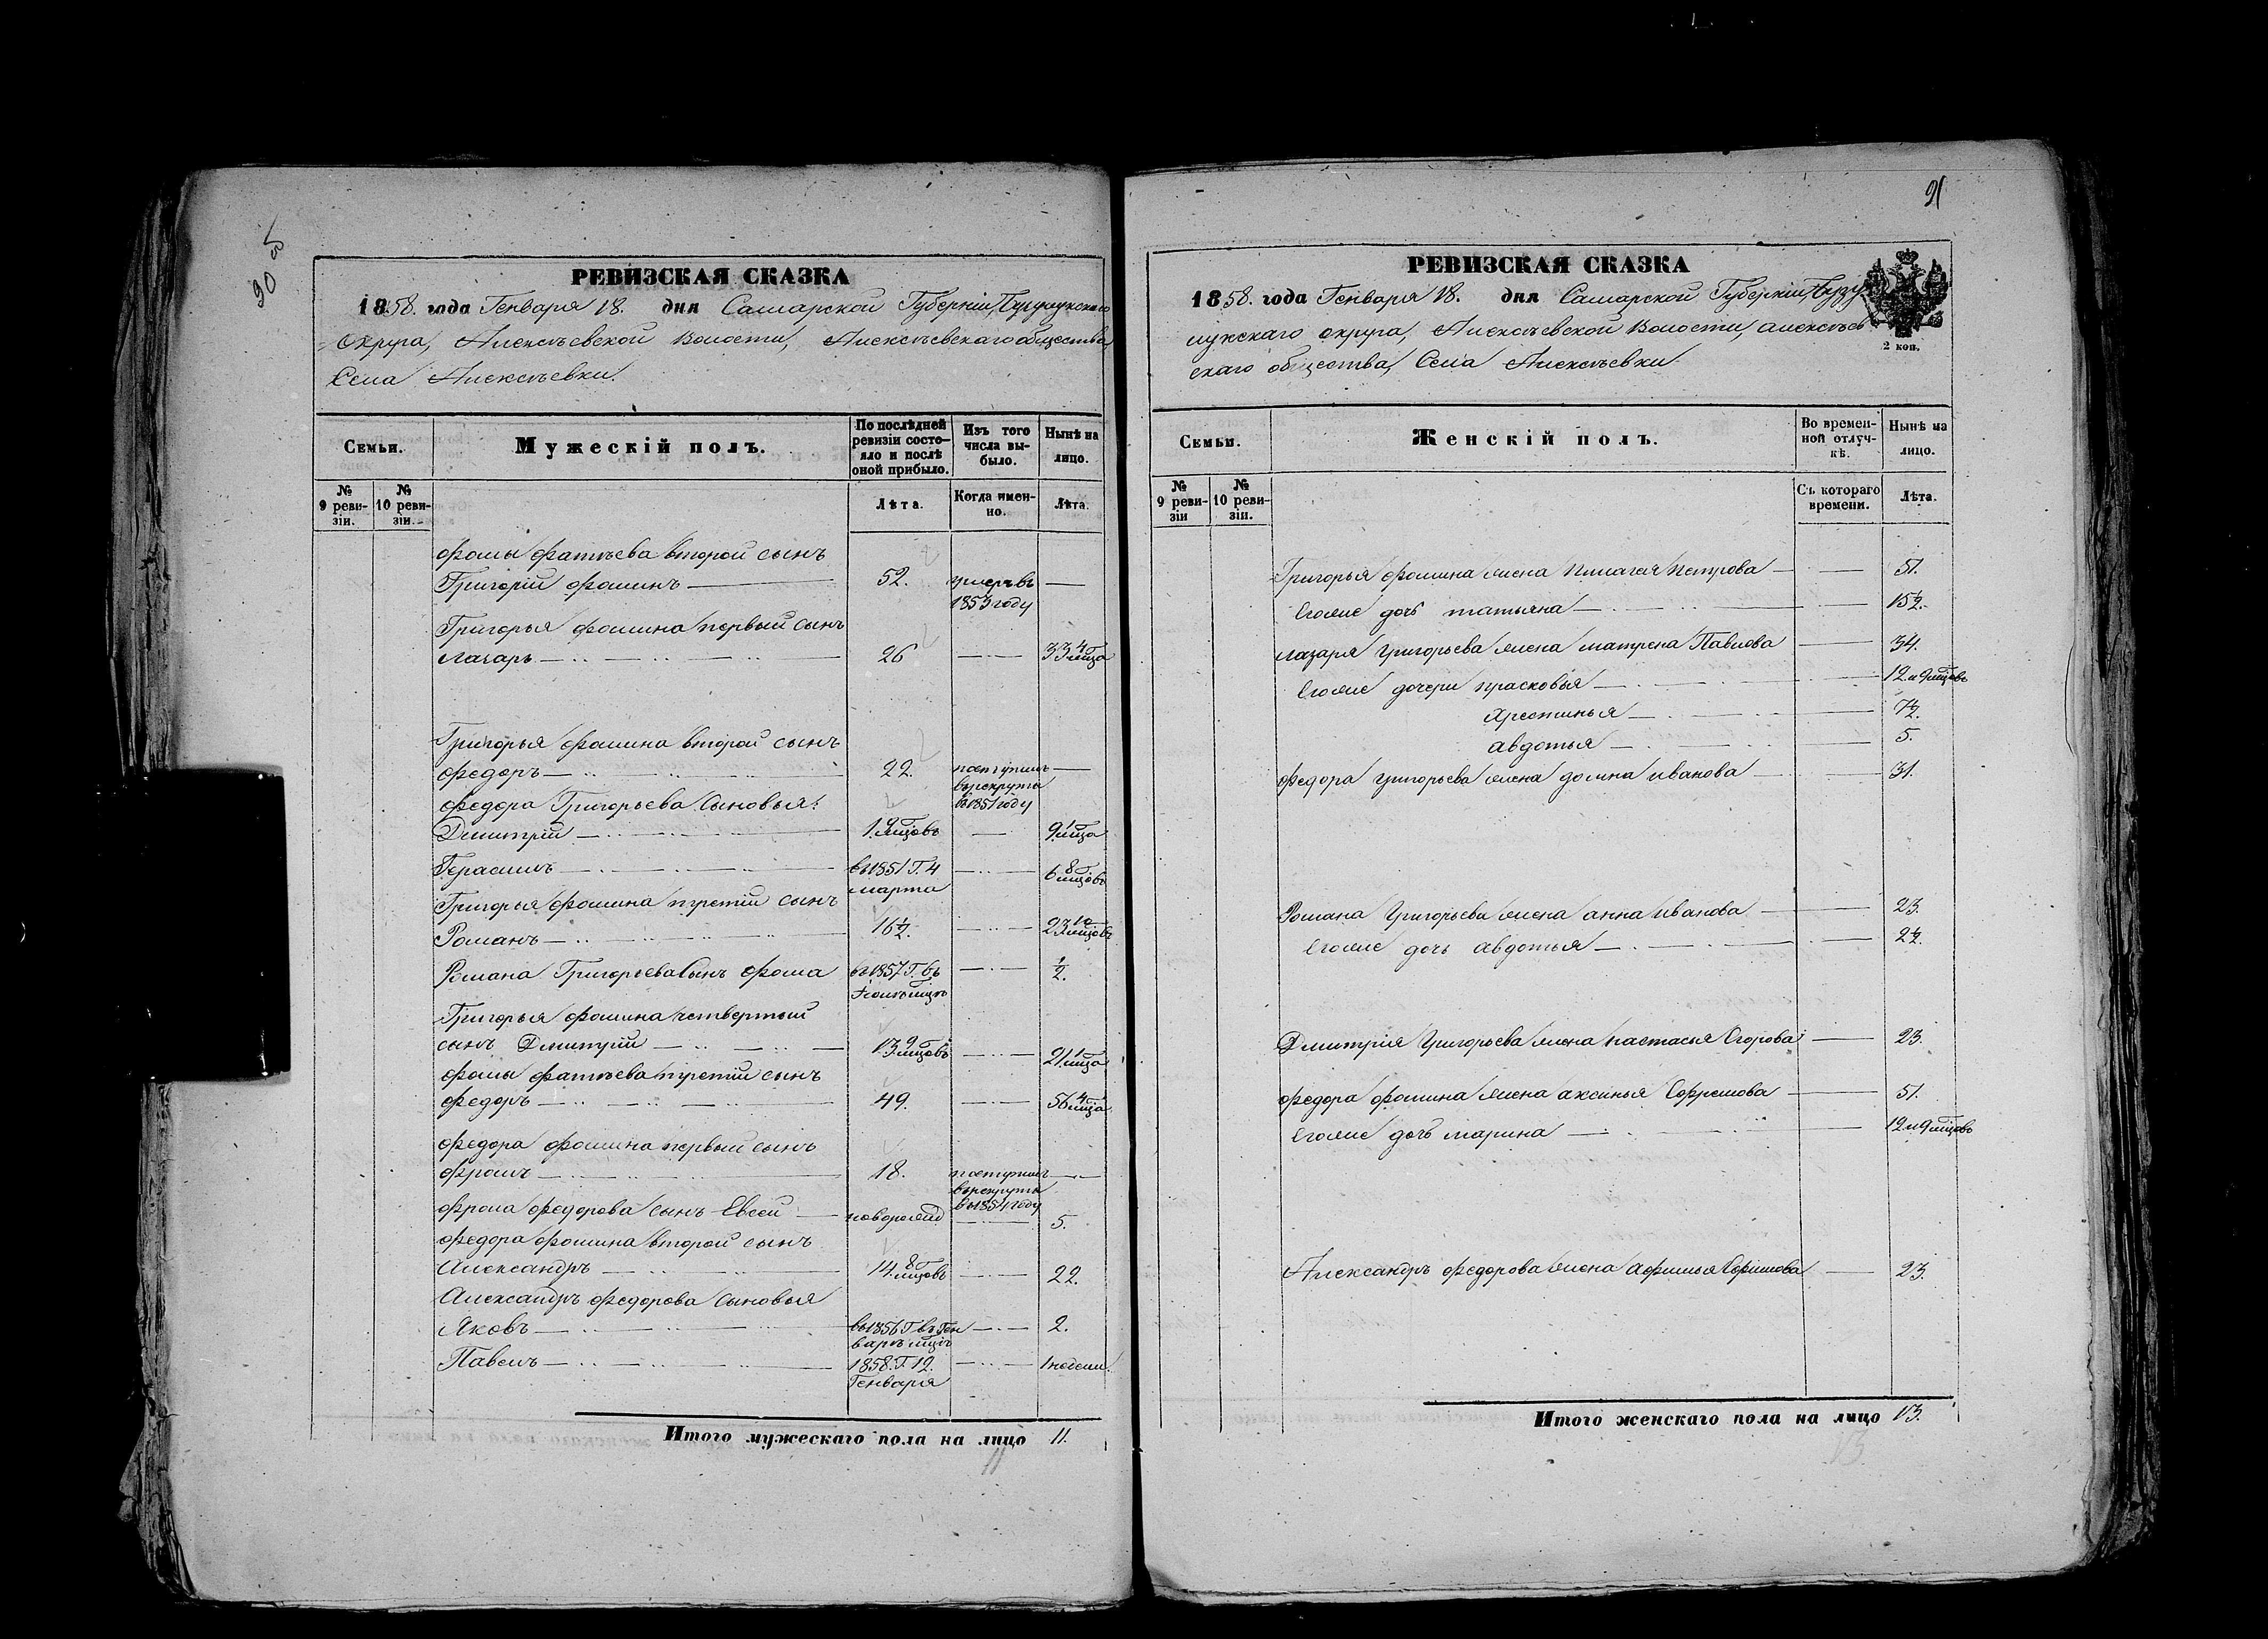 РЕВИЗСКАЯ СКАЗКА
1858. года Генваря 18. дня Самарской Губерніи, Бузулукскаго
округа, Алексѣевской Волости, Алексѣевскаго общества
Села Алексѣевки.
Семьи.
Мужескій полъ.
По послѣдней ревизіи состояло и послѣ оной прибыло.
Изъ того числа выбыло.
Нынѣ на лицо.
№ 9 ревизіи.
№ 10 ревизіи.
Лѣта.
Когда именно.
Лѣта.
Фомы Фатѣева второй сынъ
Григорій Фоминъ — 52. умеръ въ —
1853 году
Григорья Фомина первый сынъ
Лазарь — 26 — 33 4 мца
Григорья Фомина второй сынъ
Федоръ — 22. поступилъ —
въ рекруты
Федора Григорьева Сыновья: въ 1851 году
Дмитрій — 1. 9 мцовъ — 9. 1 мца
Герасимъ — въ 1851 Г. 4 — 6 8 мцовъ
марта
Григорья Фомина третій сынъ
Романъ — 16½. — 23 10 мцовъ
Романа Григорьева Сынъ Фома въ 1857 Г. въ — ½.
мцѣ
Григорья Фомина четвертый
сынъ Дмитрій — 13 9 мцовъ — 21. 1 мца
Фомы Фатѣева третій сынъ
Федоръ — 49. — 56 4 мца
Федора Фомина первый сынъ
Фролъ — 18. поступилъ —
въ рекруты
въ 1854 году
Фрола Федорова сынъ Евсей — новорожд — 5.
Федора Фомина второй сынъ
Александръ — 14. 8 мцовъ — 22.
Александръ Федорова Сыновья
Яковъ — въ 1856 Г въ Ген — 2.
варѣ мцѣ
Павелъ — 1858. Г 12. — 1 недели.
Генваря
Итого мужескаго пола на лицо 11.
11
91
РЕВИЗСКАЯ СКАЗКА
1858. года Генваря 18. дня Самарской Губерніи, Бузу
лукскаго округа, Алексѣевской Волости, Алексѣев
скаго общества, Села Алексѣевки
2 коп.
Семьи.
Женскій полъ.
Во временной отлучкѣ.
Нынѣ на лицо.
№ 9 ревизіи
№ 10 ревизіи.
Съ котораго времени.
Лѣта.
Григорья Фомина жена Пилагея Петрова — 51.
Егоже дочь татьяна — 15½.
Лазаря Григорьева жена матрена Павлова — 34.
Егоже дочери прасковья — 12 и 9 мцовъ
Хрестинья — 7½.
авдотья — 5.
Федора Григорьева жена домна иванова — 31.
Романа Григорьева жена анна иванова — 23.
Егоже дочь авдотья — 2½.
Дмитрія Григорьева жена настасья Егорова — 23.
Федора Фомина жена аксинья Ефремова — 51.
Егоже дочь марина — 12 и 9 мцовъ
Александръ Федорова жена афимья Ефимова — 23.
Итого женскаго пола на лицо 13.
13